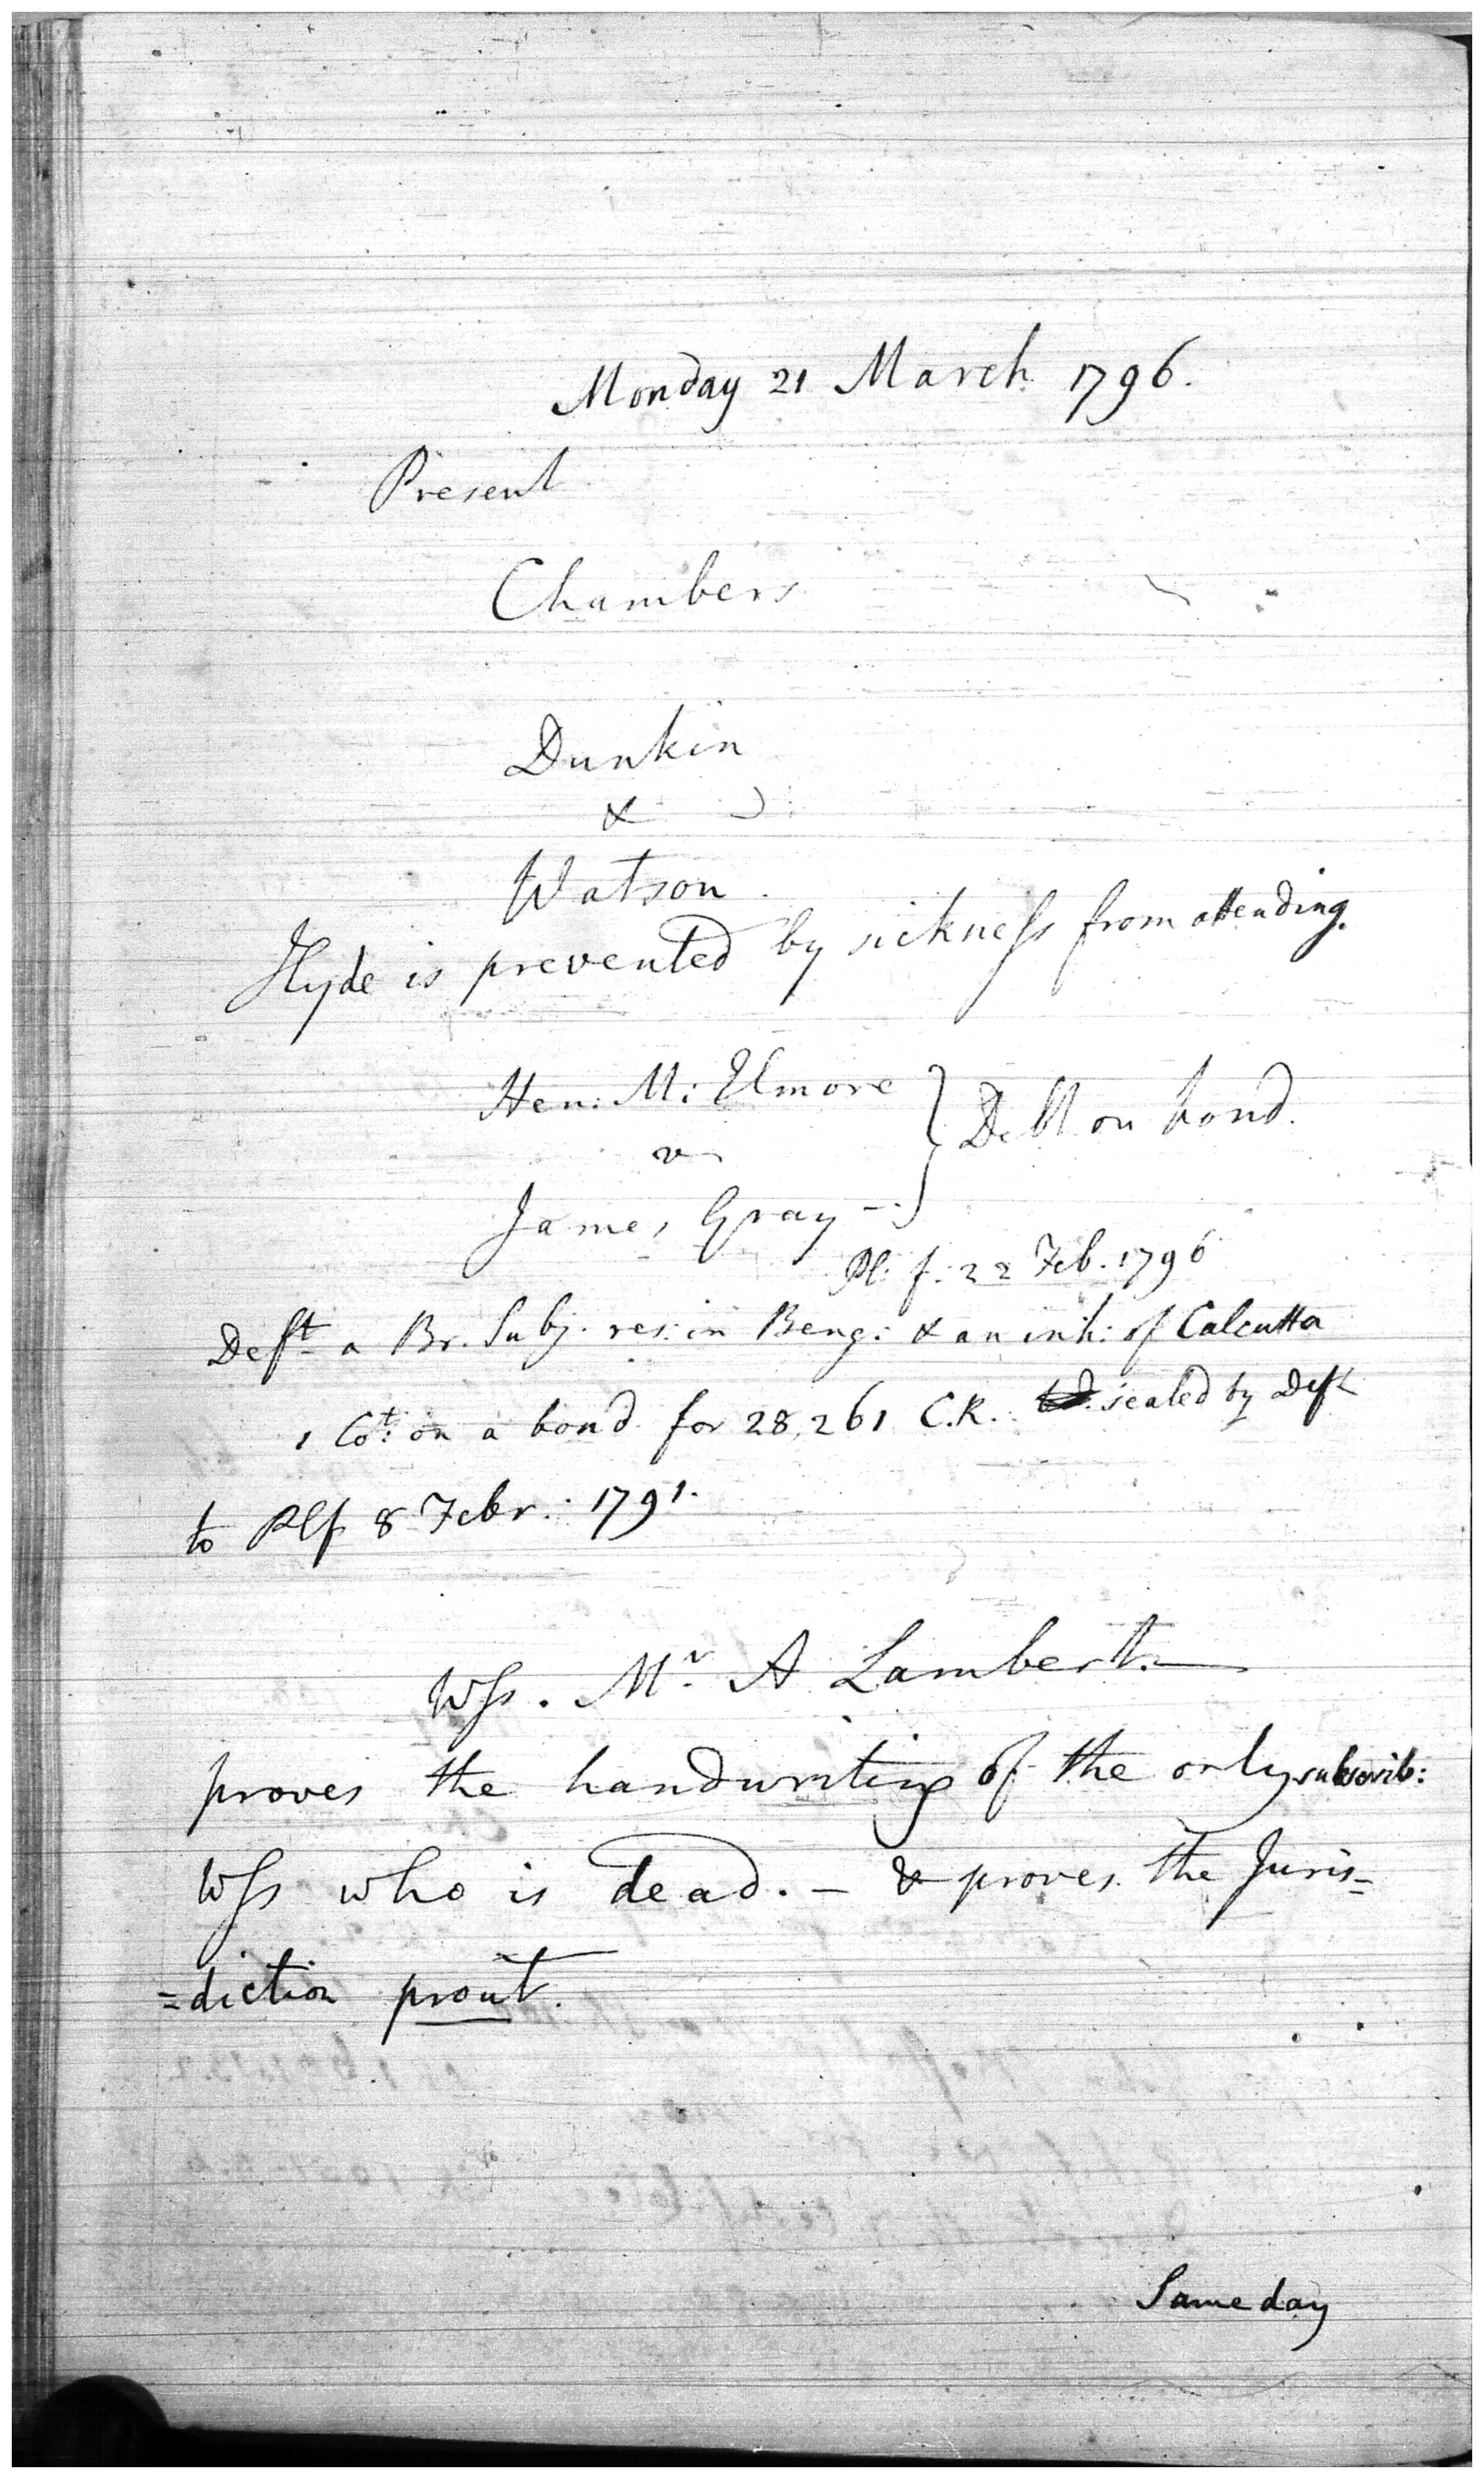 Monday 21 March 1796.
Present
Chambers
Dunkin
&
Watson.
Hyde is prevented by sickness from attending.
Hen: M: Elmore
v
James Gray -.
} Debt on bond.
Pl. f. 22 Feb. 1796
Deft a Br. Subj. res: in Beng: & an inh: of Calcutta
1 Cot: on a bond for 28,261 C.R. sealed by Deft
to Plf 8 Febr: 1791.
Wss. Mr. A Lambert.
proves the handwriting of the only subscrib:
Wss who is dead. - & proves the Juris=
=diction prout.
Same day